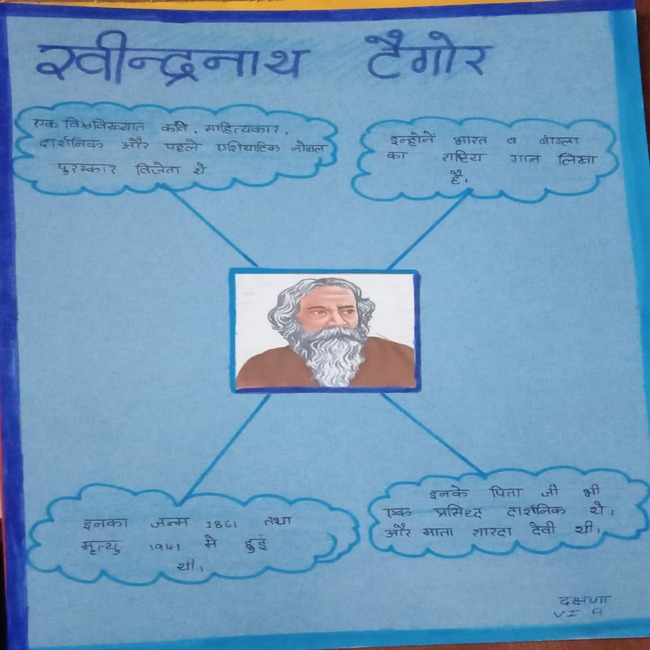 रवीन्द्रनाथ टैगोर
एक विश्वविख्यात कवि, साहित्यकार,
दार्शनिक और पहले एशियाटिक नोबल
पुरस्कार विजेता थे
इन्होनें भारत व बांग्ला
का राष्ट्रिय गान लिखा
है।
इनका जन्म 1861 तथा
मृत्यु 1941 मे हुई
थी।
इनके पिता जी भी
एक प्रसिध्द दार्शनिक थे,
और माता शारदा देवी थी।
दक्षणा
VI A